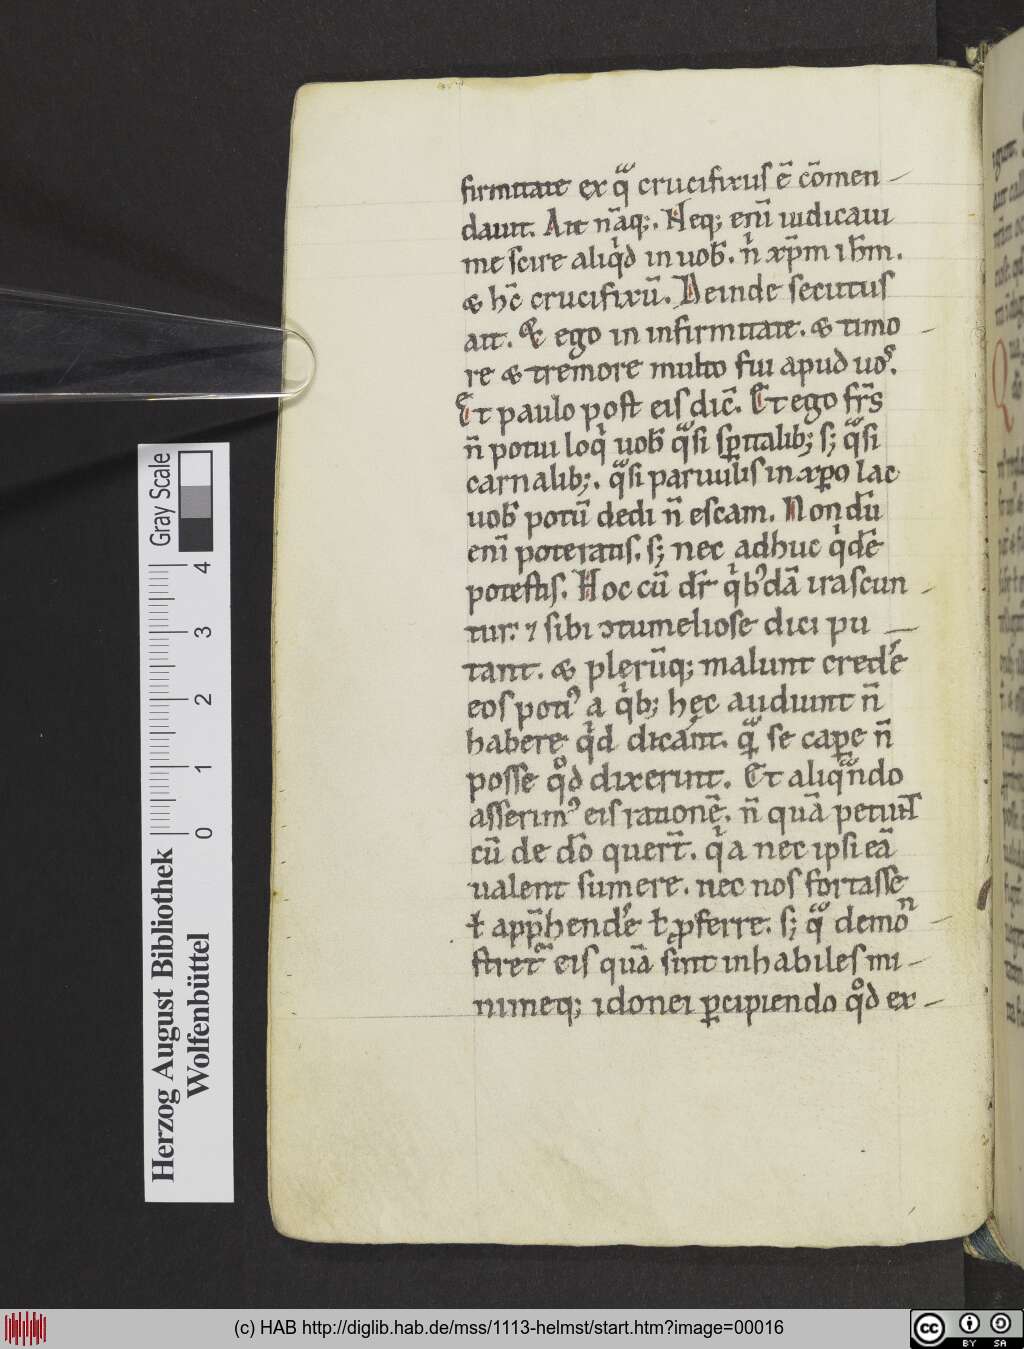 firmitate ex qͣ crucifixus ē cōmen-
dauit. Ait nāq;. Neq; eni̅ iudicaui
me scire aliqͥd in uob̅. n̅ xp̅m ih̅m.
& hc̅ crucifixū. Deinde secutus
ait. Et ego in infirmitate. & timo-
re & tremore multo fui apud uos.
Et paulo post eis dic̅. Et ego fr̅s
n̅ potui loqͥ uob̅ qͣsi sp̅italib; s; qͣsi
carnalib;. qͣsi paruulis in xp̅o lac
uob̅ potū dedi n̅ escam. Nondū
eni̅ poteratis. s; nec adhuc qͥde̅
potestis. Hoc cū dr̅ qͥbꝰdā irascun-
tur. ⁊ sibi ↄtumeliose dici pu-
tant. & plerūq; malunt credē
eos potiꝰ a qͥb; hęc audiunt n̅
habere qͥd dicant. qͣꝫ se cape̅ n̅
posse qͦd dixerint. Et aliqͣndo
asserimꝰ eis rationē. n̅ quā petunt
cū de dō quer̅t. qͥa nec ipsi eā
ualent sumere. nec nos fortasse
ł app̅hendē ł ꝓferre. s; qͣ demon-
stret eis quā sint inhabiles mi-
nimeq; idonei ꝑcipiendo qͦd ex-
Gray Scale
4
3
2
1
0
Herzog August Bibliothek
Wolfenbüttel
(c) HAB http://diglib.hab.de/mss/1113-helmst/start.htm?image=00016
cc
BY
SA